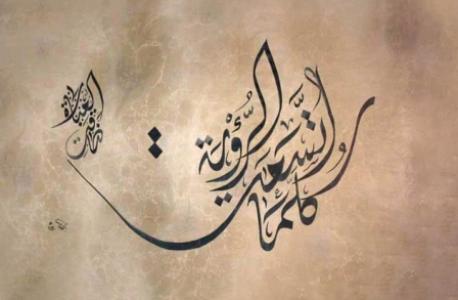 كُلَّمَا اتَّسَعَتِ الرُّؤْيَةُ
ضَاقَتِ العِبَارَةُ